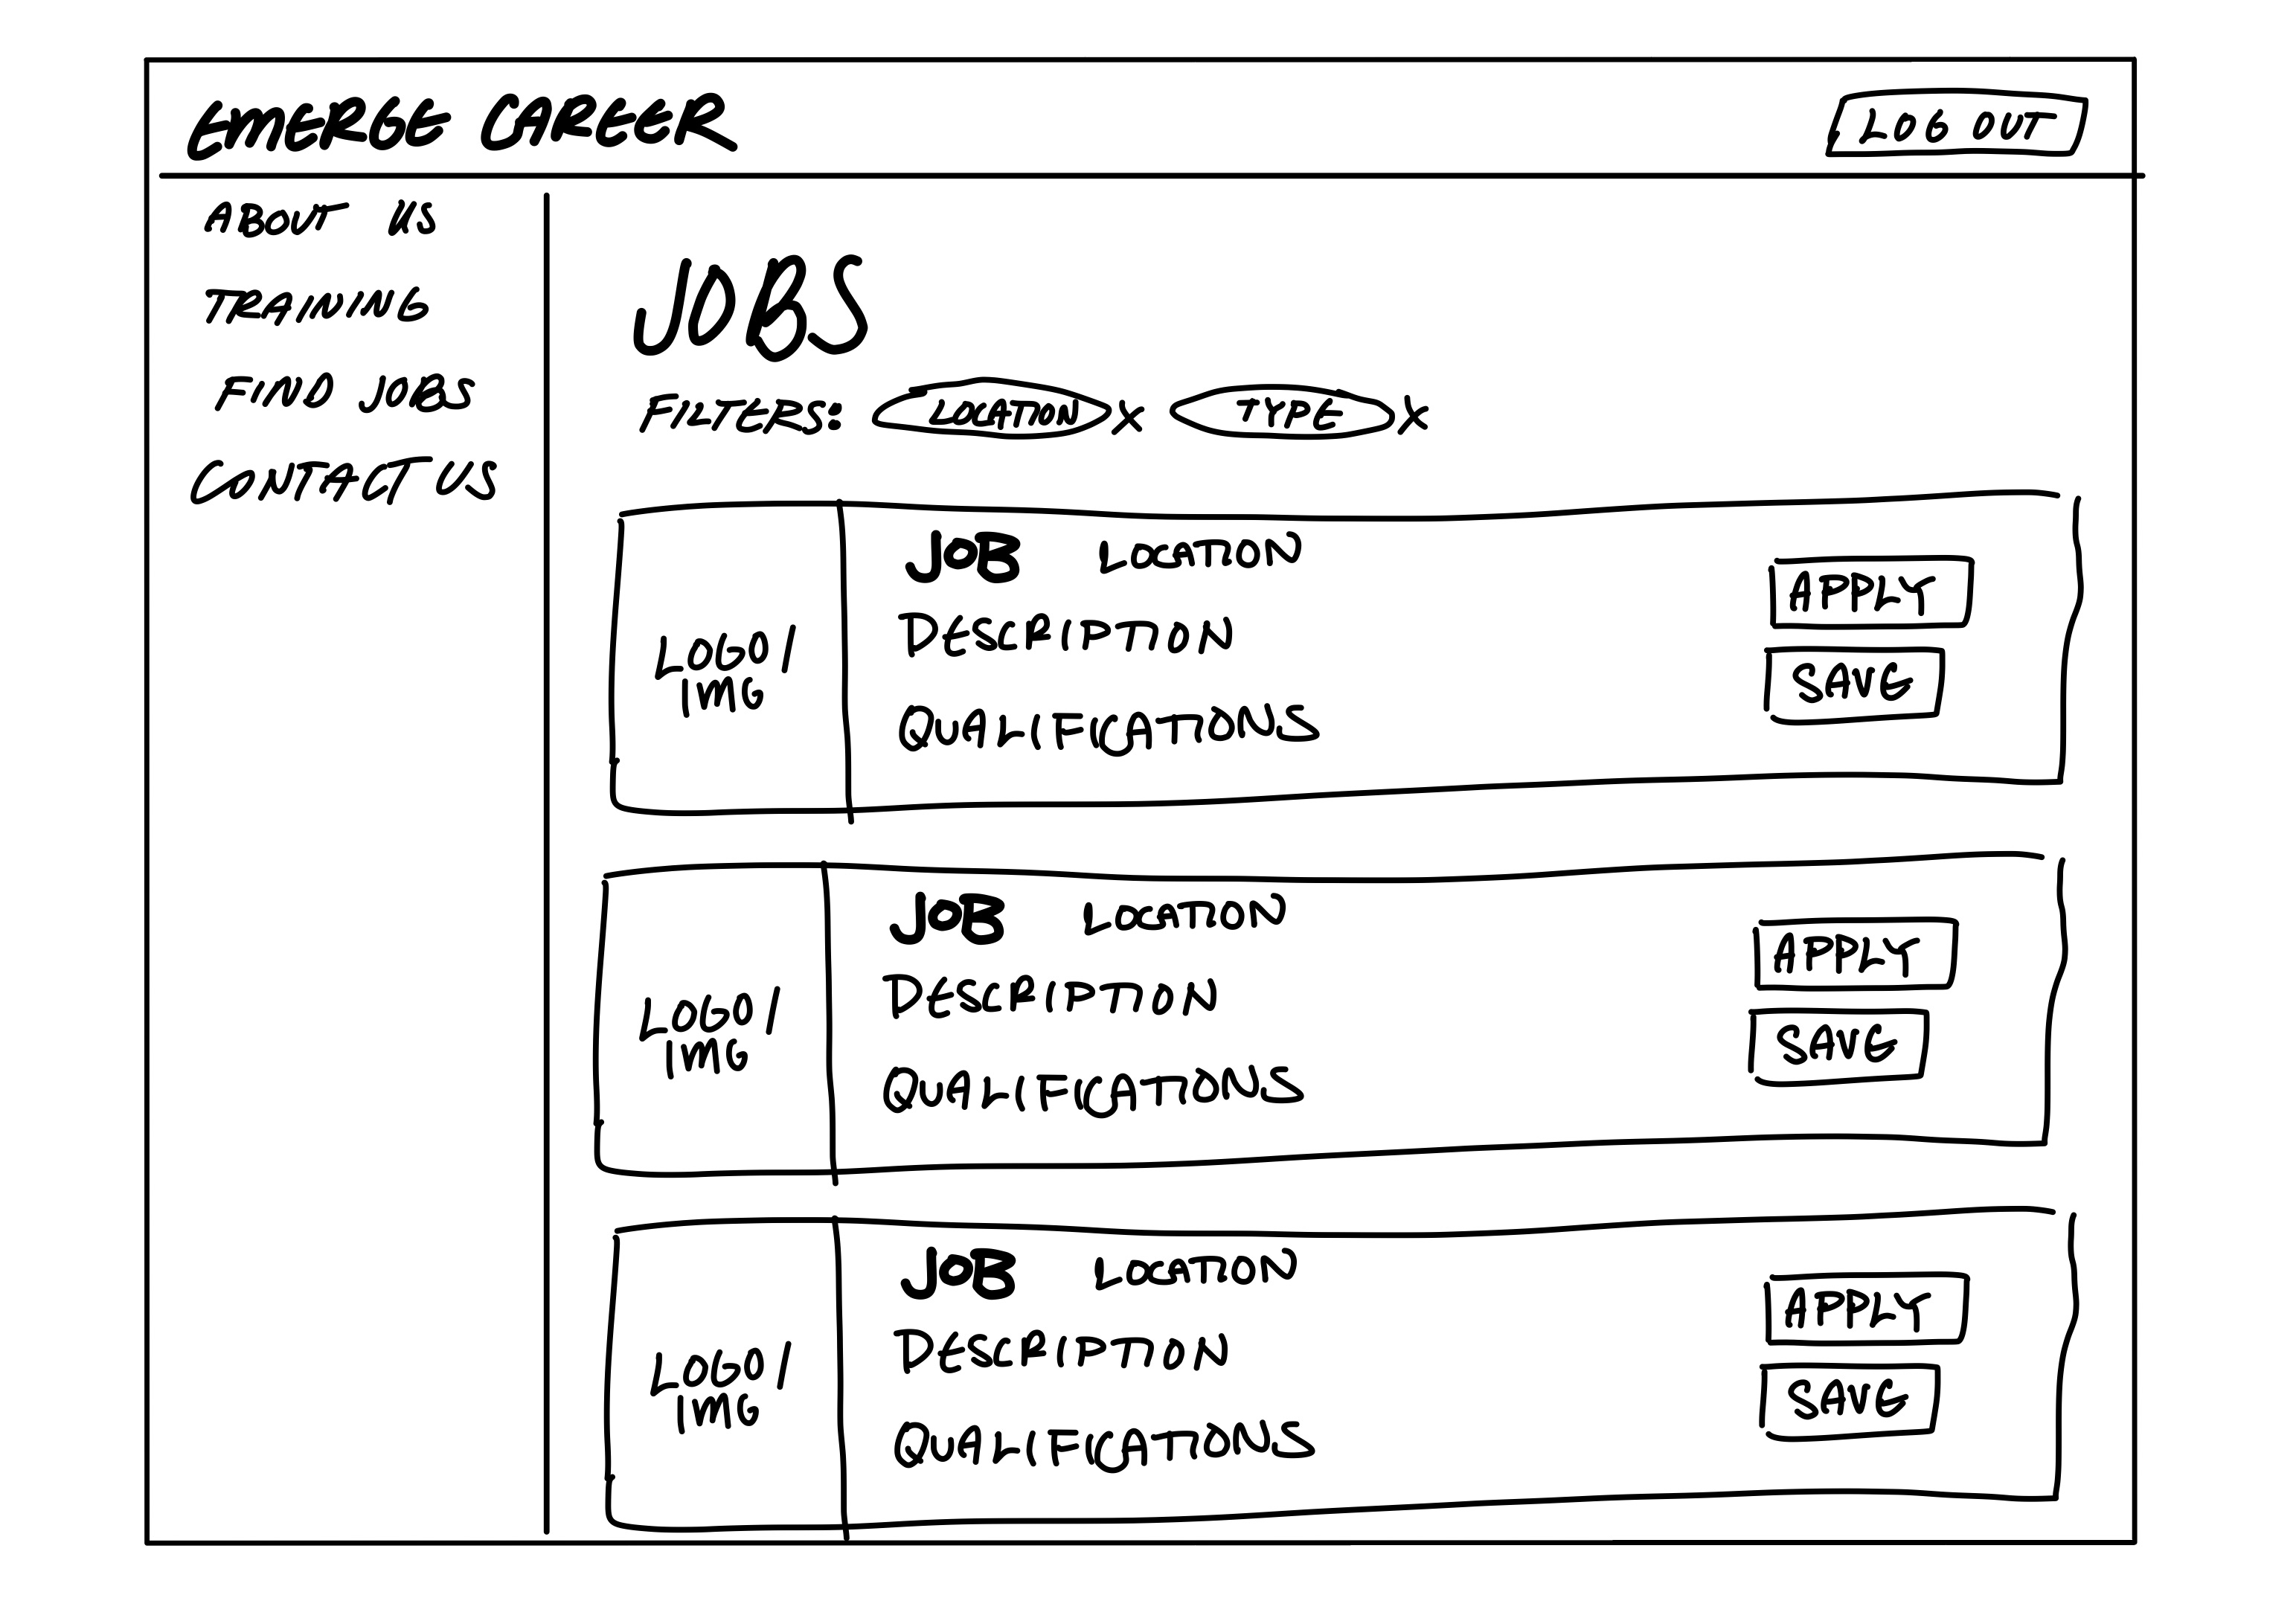 EMERGE CAREER
LOG OUT
ABOUT US
TRAINING
FIND JOBS
CONTACT US
JOBS
FILTERS: LOCATION X TYPE X
LOGO/
IMG
JOB LOCATION
DESCRIPTION
QUALIFICATIONS
APPLY
SAVE
LOGO/
IMG
JOB LOCATION
DESCRIPTION
QUALIFICATIONS
APPLY
SAVE
LOGO/
IMG
JOB LOCATION
DESCRIPTION
QUALIFICATIONS
APPLY
SAVE